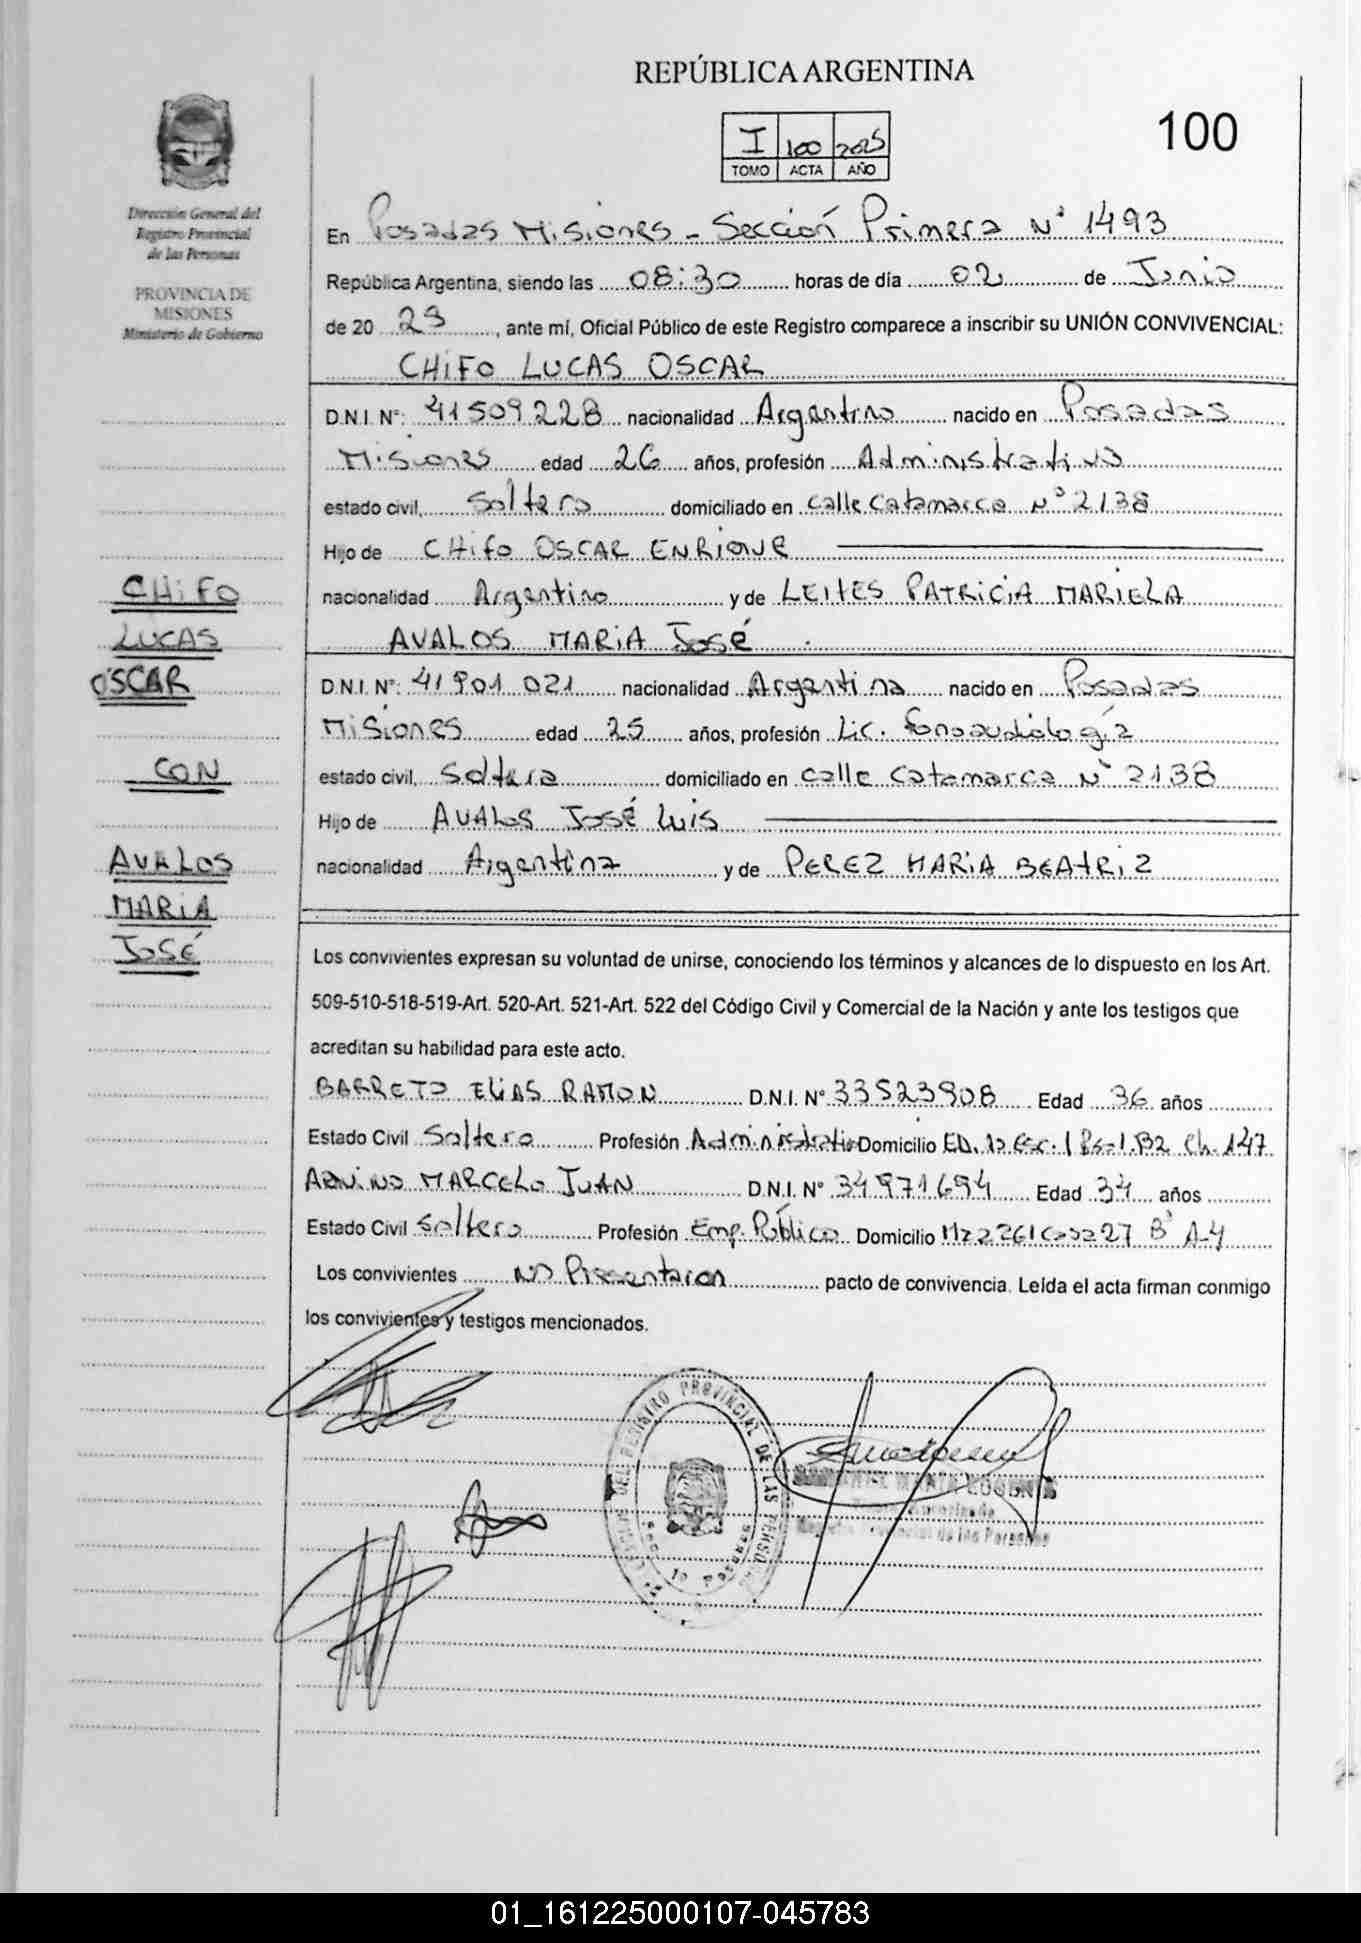 REPÚBLICA ARGENTINA
100
I 100 2025
TOMO ACTA AÑO
Dirección General del
Registro Provincial
de las Personas
PROVINCIA DE
MISIONES
Ministerio de Gobierno
En Posadas Misiones - Sección Primera N° 1493
República Argentina, siendo las 08:30 horas de día 02 de Junio
de 20 25, ante mí, Oficial Público de este Registro comparece a inscribir su UNIÓN CONVIVENCIAL:
CHIFO LUCAS OSCAR
D.N.I. N°: 41509228 nacionalidad Argentino nacido en Posadas
Misiones edad 26 años, profesión Administrativo
estado civil, Soltero domiciliado en calle Catamarca N° 2138
Hijo de CHIFO OSCAR ENRIQUE
nacionalidad Argentino y de LEITES PATRICIA MARIELA
AVALOS MARIA JOSÉ
D.N.I. N°: 41901021 nacionalidad Argentina nacido en Posadas
Misiones edad 25 años, profesión Lic. Fonoaudiología
estado civil, Soltera domiciliado en calle Catamarca N° 2138
Hijo de AVALOS JOSÉ LUIS
nacionalidad Argentina y de PEREZ MARIA BEATRIZ
CHIFO
LUCAS
OSCAR
CON
AVALOS
MARIA
JOSÉ
Los convivientes expresan su voluntad de unirse, conociendo los términos y alcances de lo dispuesto en los Art.
509-510-518-519-Art. 520-Art. 521-Art. 522 del Código Civil y Comercial de la Nación y ante los testigos que
acreditan su habilidad para este acto.
BARRETO ELIAS RAMON D.N.I. N° 33523908 Edad 36 años
Estado Civil Soltero Profesión Administrativo Domicilio Ed. 12 Esc. 1 Ps-1 B2 Ch. 147
MARCELO JUAN D.N.I. N° 34971694 Edad 34 años
Estado Civil Soltero Profesión Emp. Público Domicilio Mz 2261 Casa 27 B° A-4
Los convivientes NO Presentaron pacto de convivencia. Leída el acta firman conmigo
los convivientes y testigos mencionados.
REGISTRO PROVINCIAL DE LAS PERSONAS
Registro Provincial de las Personas
01_161225000107-045783